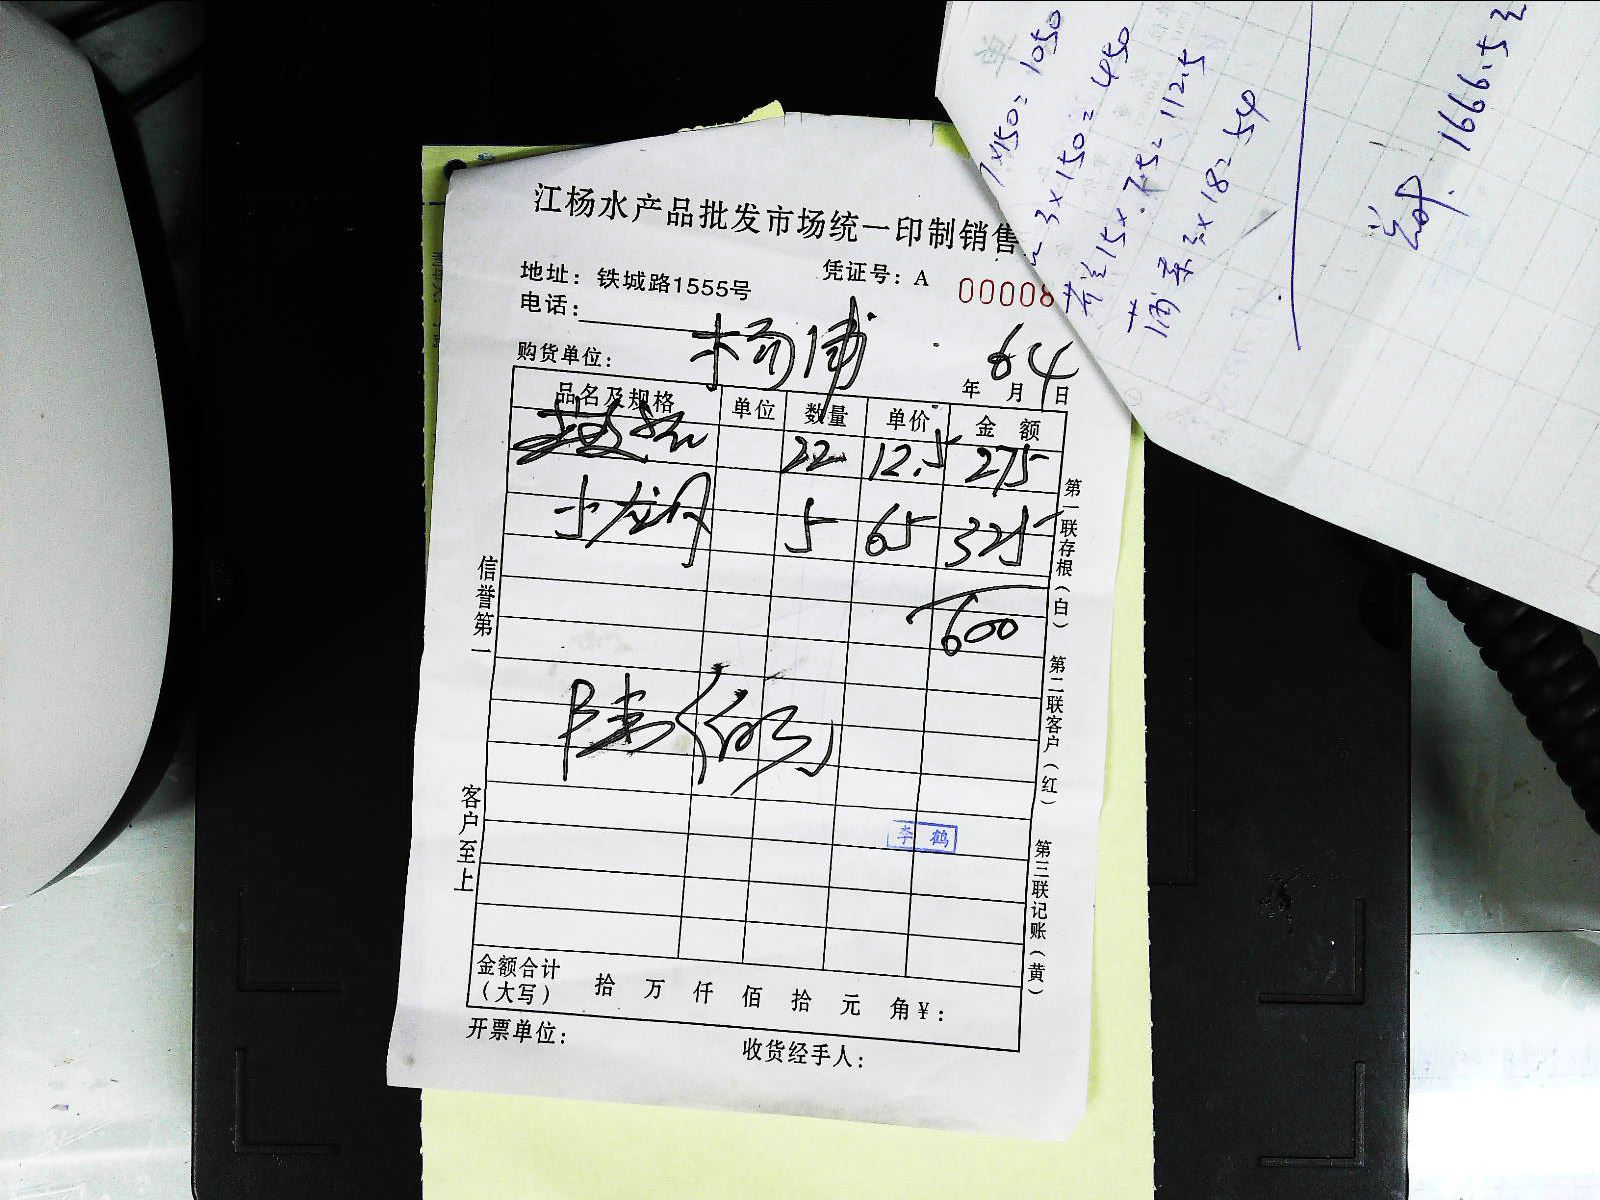 江杨水产品批发市场统一印制销售
地址：铁城路1555号
凭证号：A 00008
电话：
购货单位： 杨浦
年 6 月 4 日
品名及规格 单位 数量 单价 金额
22 12.5 275
小龙 5 65 325
600
李鹤
金额合计（大写） 拾 万 仟 佰 拾 元 角 ¥：
开票单位：
收货经手人：
信誉第一
客户至上
第一联存根（白）
第二联客户（红）
第三联记账（黄）
7×150=1050
3×150=450
15×7.5=112.5
×18=54
1666.5元